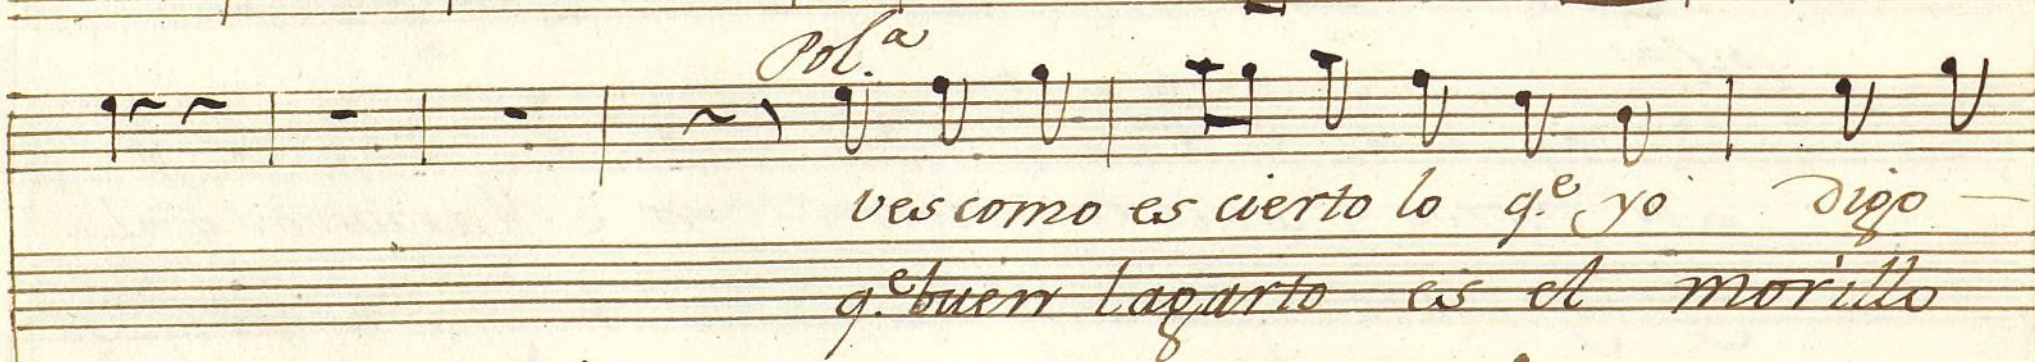 Pol.a
ves como es cierto lo q.e yo digo
q.e buen lagarto es el morillo